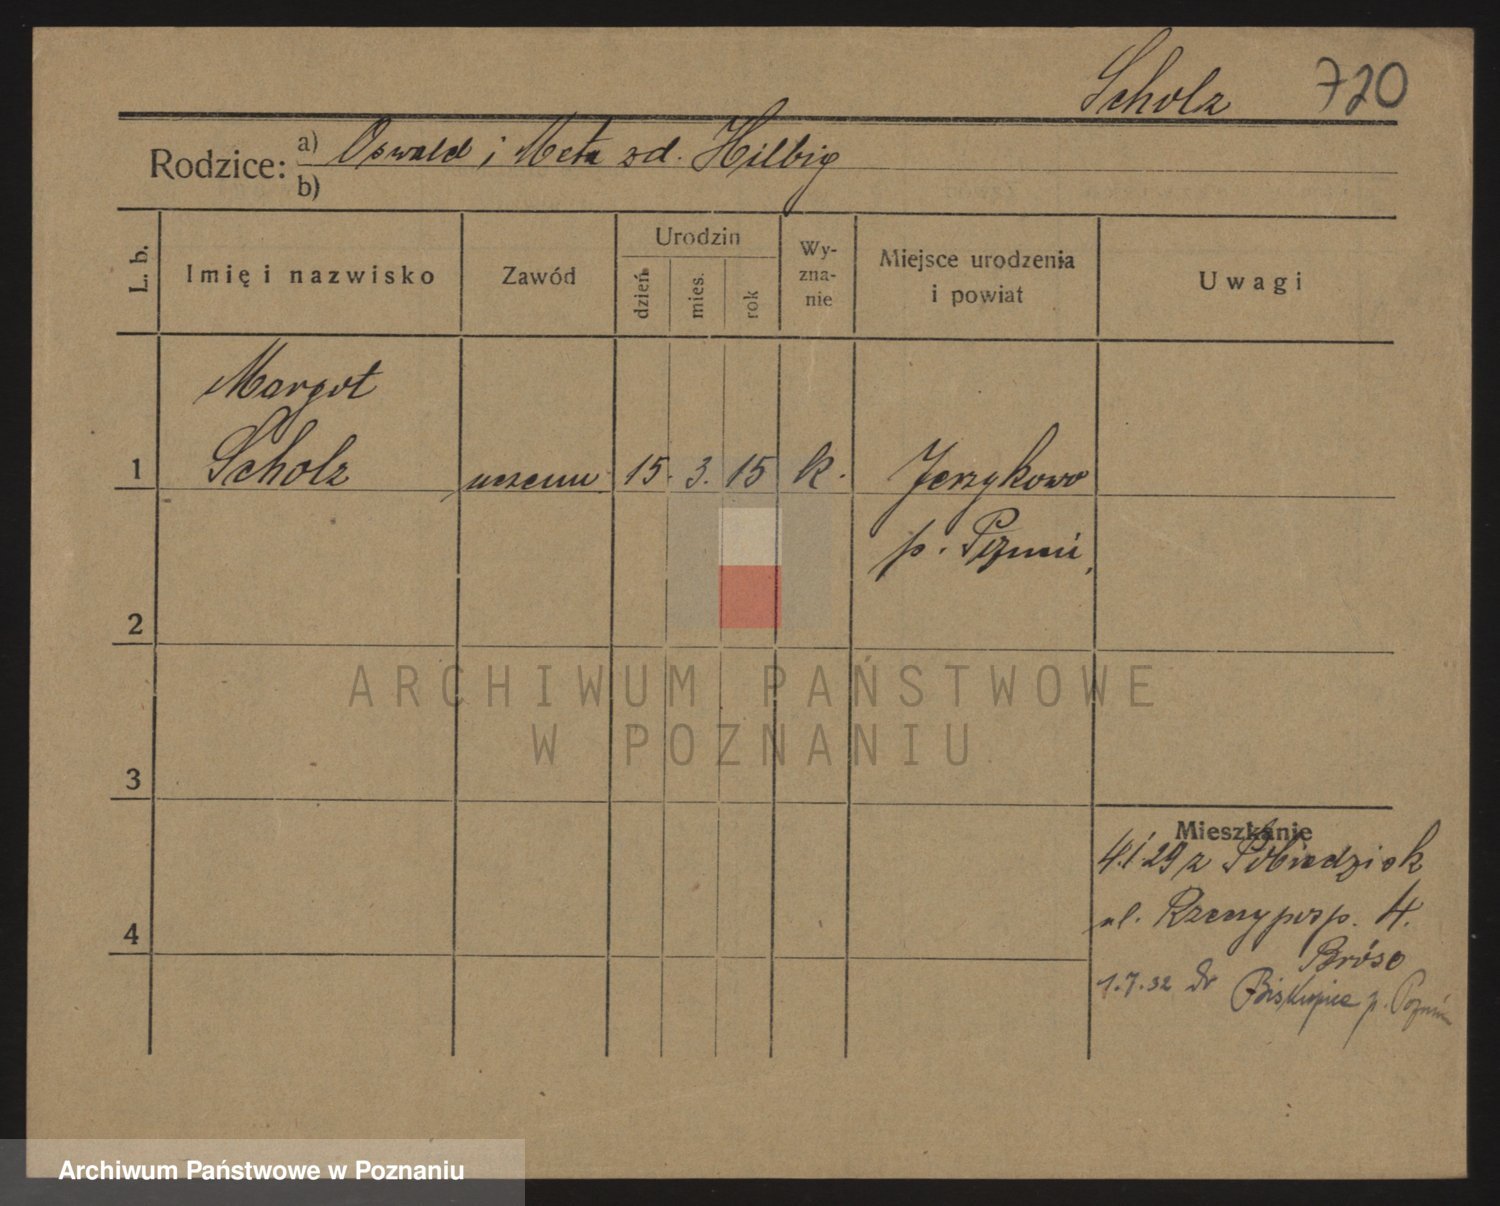 Scholz 720
Rodzice: a) Oswald i Meta zd. Hilbig
b)
L. b. Imię i nazwisko Zawód Urodzin dzień mies. rok Wy-zna-nie Miejsce urodzenia i powiat Uwagi
Margot
1 Scholz uczenn 15. 3. 15 k. Jerzykowo
p. Poznań,
2
ARCHIWUM PAŃSTWOWE
W POZNANIU
3
Mieszkanie
4.1.29 z Pobiedzisk
ul. Rzeczyposp. 4.
4
Bróse
1.7.32 do Biskupice p. Poznań
Archiwum Państwowe w Poznaniu